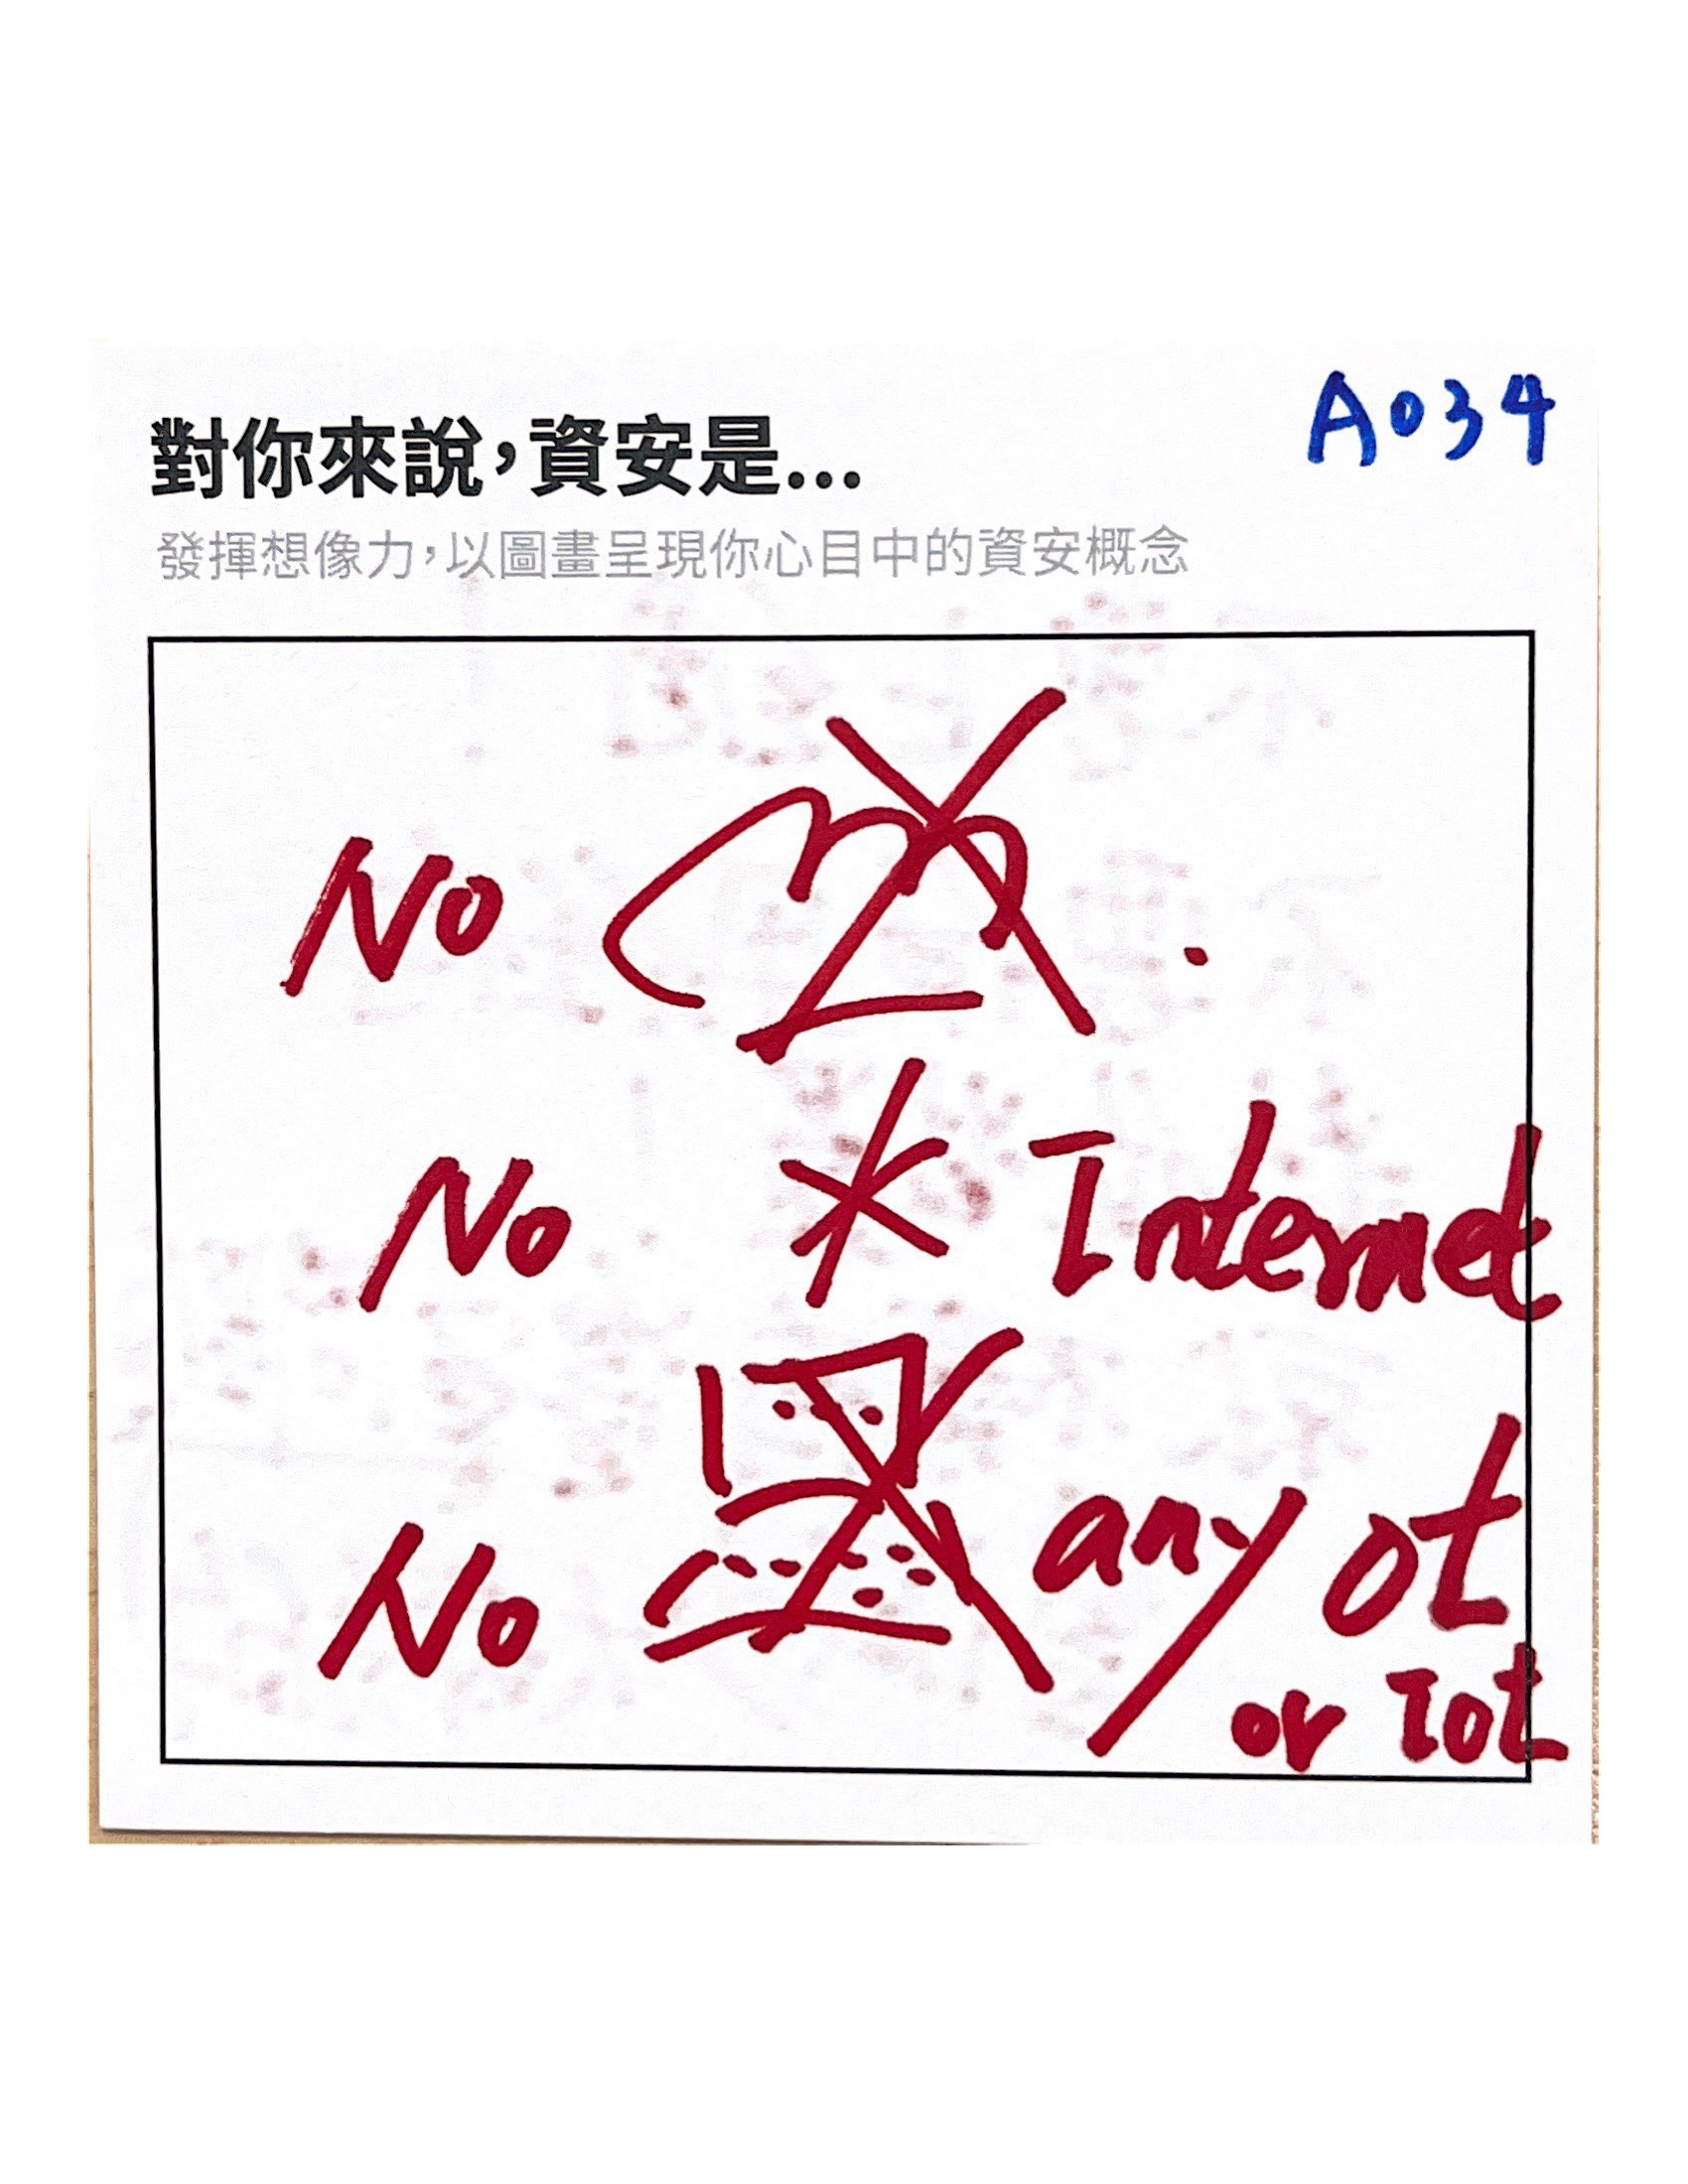 A034
對你來說,資安是...
發揮想像力,以圖畫呈現你心目中的資安概念
No
No Internet
No any ot
or Iot